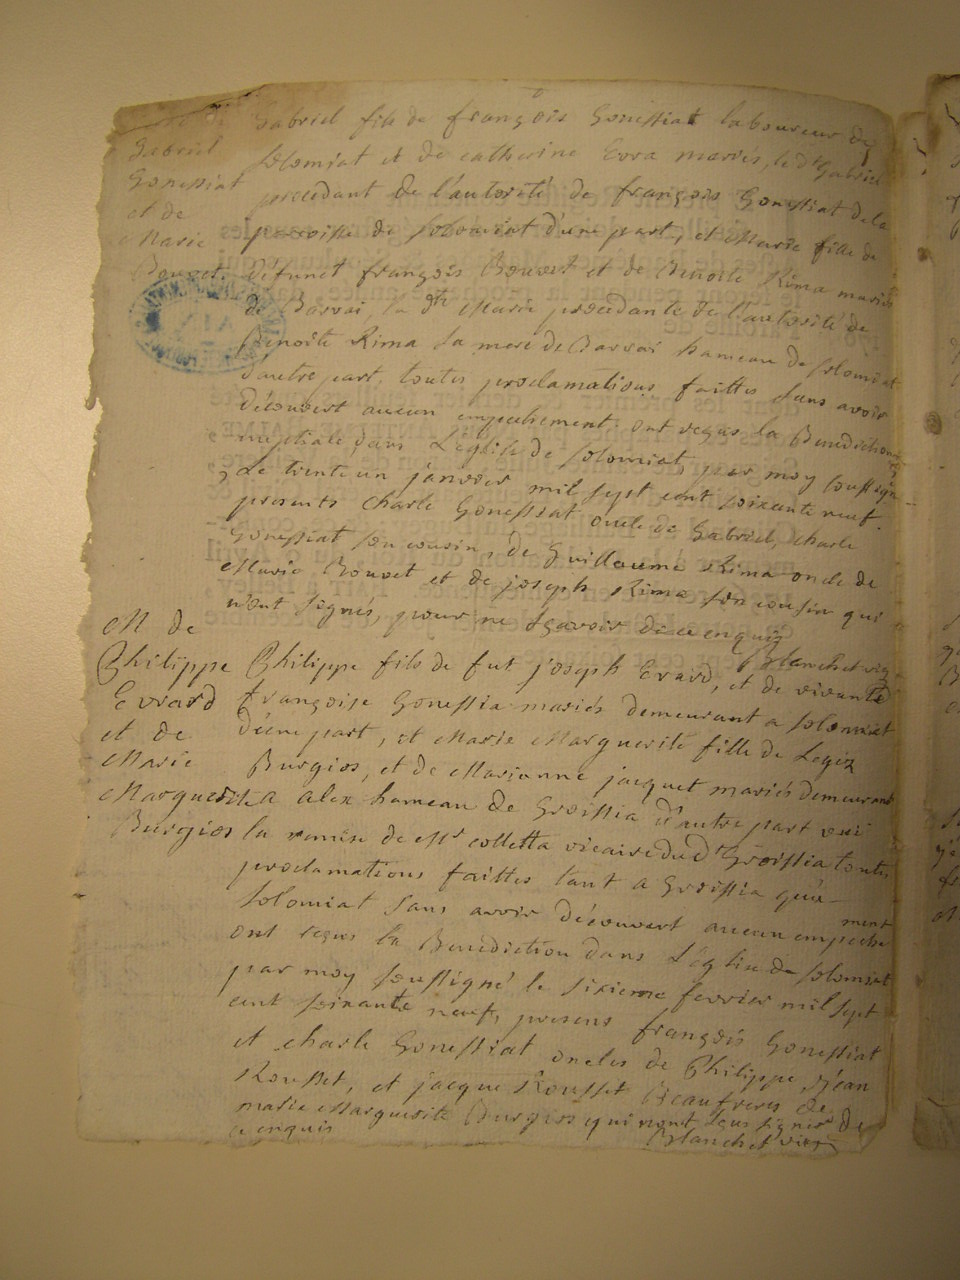 Gabriel
Gonessiat
et de
Marie
Bouvet
Gabriel fils de françois Gonessiat laboureur de
Solomiat et de catherine Evra mariés, le dt Gabriel
procedant de l'autorité de françois Gonessiat de la
paroisse de Solomiat d'une part, et Marie fille de
défunct françois Bouvet et de Benoite Rima mariés
de Barvai, la dte Marie procedante de l'autorité de
Benoite Rima sa mere de Barvai hameau de Solomiat
d'autre part, toutes proclamations faittes sans avoir
découvert aucun empechement ont reçus la Benediction
nuptiale dans L'eglise de Solomiat, par moy soussigné
Le trente un janvier mil sept cent soixante neuf.
presents Charle Gonessiat oncle de Gabriel, charle
Gonessiat son cousin, de Guillaume Rima oncle de
Marie Bouvet et de joseph Rima son cousin qui
n'ont signés, pour ne sçavoir de ce enquis
Blanchet vic
M de
Philippe
Evrard
et de
Marie
Marguerite
Burgios
Philippe fils de fut joseph Evard, et de vivante
françoise Gonessia mariés demeurant a Solomiat
d'une part, et Marie Marguerite fille de
Burgios, et de Marianne jacquet mariés demeurant
a Alex hameau de Groissia d'autre part vüe
la remise de Mr colletta vicaire du dt Groissia toutes
proclamations faittes tant a Groissia qu'a
Solomiat sans avoir découvert aucun empeche
ment
ont reçus la Benediction dans L'eglise de Solomiat
par moy soussigné le sixieme fevrier mil sept
cent soixante neuf, presens françois Gonessiat
et charle Gonessiat oncles de Philippe, jean
Rousset, et jacque Rousset Beaufreres de
marie Marguerite Burgios qui n'ont sçus signer de
ce enquis
Blanchet vic